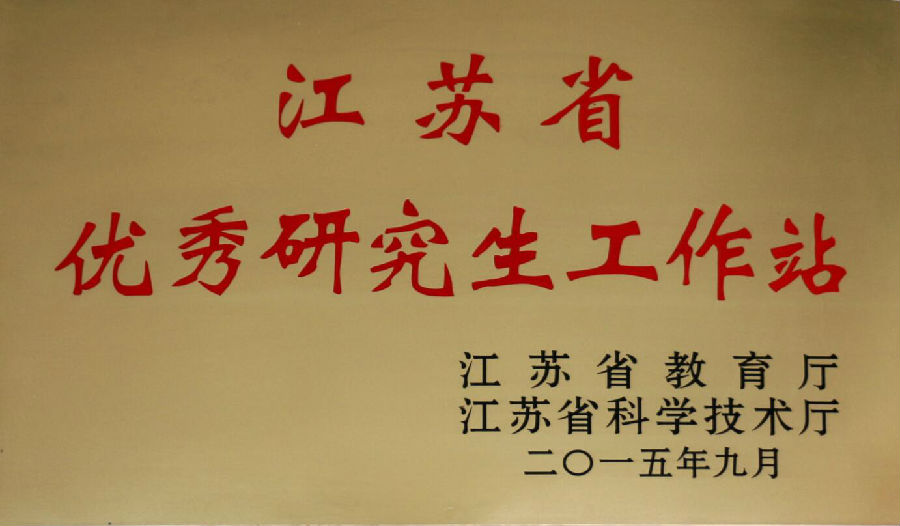 江苏省
优秀研究生工作站
江苏省教育厅
江苏省科学技术厅
二〇一五年九月